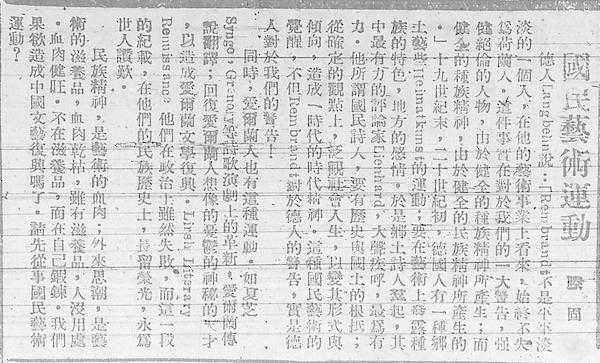 國民藝術運動 滕固
德人Langbehn說:「Rembrandt不是平平淡
淡的一個人,在他的藝術事業上看來,始終不失
爲荷蘭人。這件事實在對於我們的一大警告,强
健絕倫的人物,由於健全的種族精神所產生;而
健全的種族精神,由於健全的民族精神所產生的
。」十九世紀末,二十世紀初,德國人有一種鄉
土藝術Heimatkunst的運動;要在藝術上發露種
族的特色,地方的感情。於是鄉土詩人羣起,其
中最有力的評論家Lienhard,大聲疾呼,最爲有
力。他所謂國民詩人,要有歷史與國土的根抵;
從確定的觀點上,泛觀社會人生,以變其形式與
傾向,造成一時代的時代精神。這種國民藝術的
覺醒,不但Rembrandt對於德人的警告,實是德
人對於我們的警告!
同時,愛爾蘭人也有這種運動。如夏芝
Synge, Gregory等詩歌演劇上的革新。愛爾蘭傳
說翻譯;回復愛爾蘭人想像的憂鬱的神祕的天才
,以造成愛爾蘭文學復興。Irish Literary
Renaissance 他們在政治上雖然失敗,而這一段
的紀載,在他們的民族歷史上,長留榮光,永爲
世人讚歎。
民族精神,是藝術的血肉;外來思潮,是藝
術的滋養品,血肉乾枯,雖有滋養品,人沒用處
。血肉健旺,不在滋養品,而在自己鍛鍊。我們
果欲造成中國文藝復興嗎?請先從事國民藝術
運動?